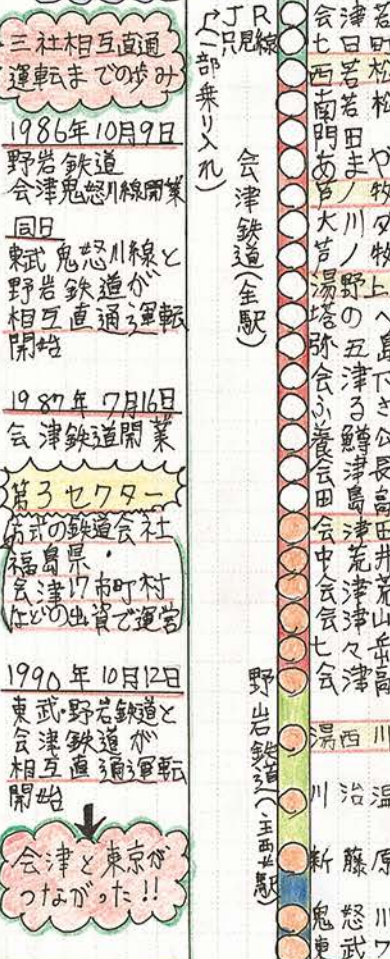 三社相互直通
運転までの歩み
1986年10月9日
野岩鉄道
会津鬼怒川線開業
同日
東武鬼怒川線と
野岩鉄道が
相互直通運転
開始
1987年7月16日
会津鉄道開業
第3セクター
方式の鉄道会社
福島県・
会津17市町村
などの出資で運営
1990年10月12日
東武・野岩鉄道と
会津鉄道が
相互直通運転
開始
会津と東京が
つながった!!
JR
只見線
(一部乗り入れ)
会津鉄道(全駅)
野岩鉄道(主要駅)
会津若
七日
西若松
南若松
門田
あまや
芦ノ牧
大川ダ
芦ノ牧
湯野上
塔のへ
弥五島
会津下
ふるさ
養鱒公
会津長
田島高
会津田
中荒井
会津荒
会津山
七ヶ岳
会津高
湯西川
川治温
新藤原
鬼怒川
東武ワ